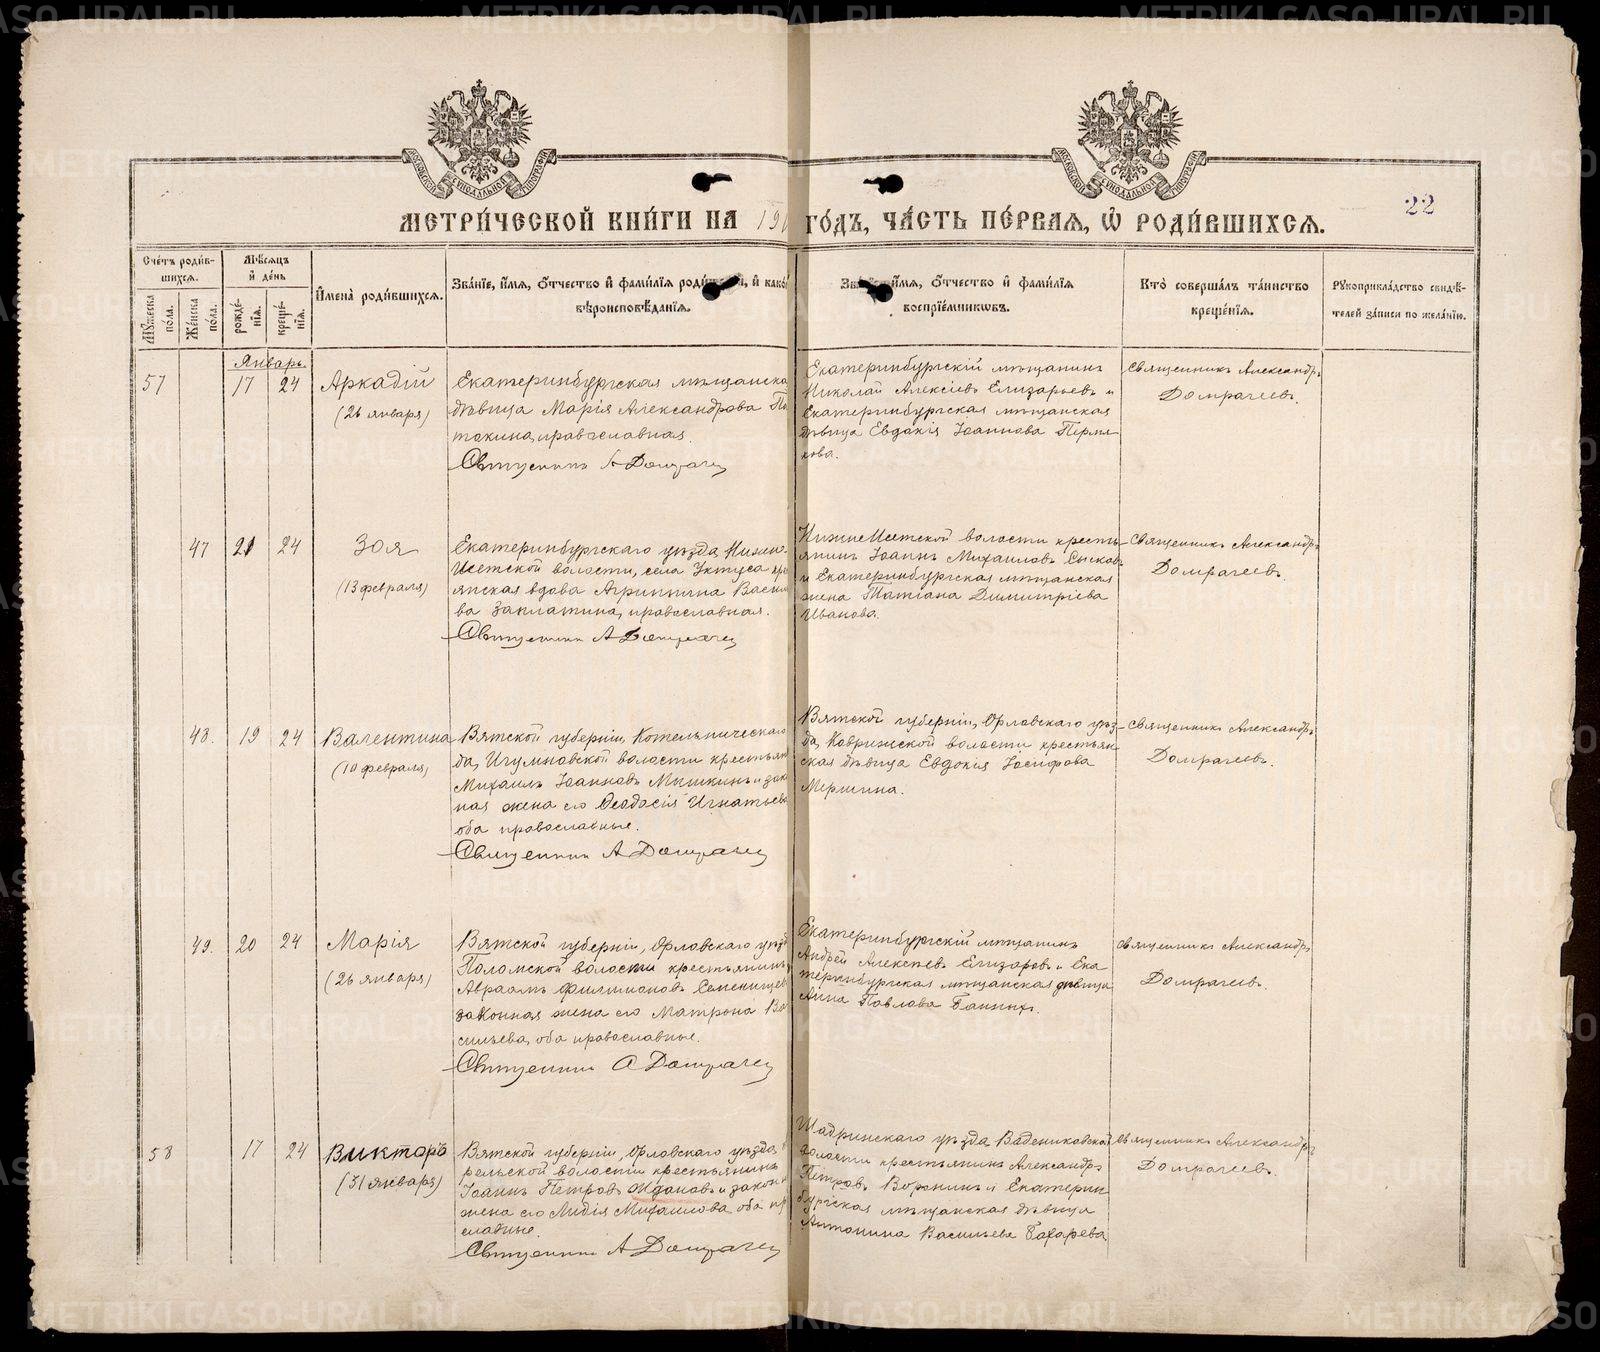 МЕТРИ́ЧЕСКОЙ КНИ́ГИ НА 191
ГО́ДЪ, ЧА́СТЬ ПЕ́РВАЯ, Ѡ҆ РОДИ́ВШИХСЯ.
22
МОСКОВСКОЙ СѴНОДАЛЬНОЙ ТИПОГРАФІИ
МОСКОВСКОЙ СѴНОДАЛЬНОЙ ТИПОГРАФІИ
Сче́тъ роди́в-
шихся.
Мѣ́сяцъ
и҆ де́нь
Мꙋжеска
по́ла.
Же́нска
по́ла.
рожде́-
нїя.
креще́-
нїя.
И҆мена̀ роди́вшихся.
Зва́нїе, и҆́мя, ѻ҆́тчество и҆ фами́лїя
вѣроисповѣ́данїя.
и҆́мя, ѻ҆́тчество и҆ фами́лїя
воспрїе́мниковъ.
Кто̀ соверша́лъ та́инство
креще́нїя.
Рꙋкоприкла́дство свидѣ́-
телей за́писи по жела́нїю.
Январь.
57
17
24
Аркадій
(26 января)
Екатеринбургская мѣщанска
дѣвица Марія Александрова По
такина, православная.
Священникъ А Домрачев
Екатеринбургскій мѣщанинъ
Николай Алексіевъ Елизарьевъ и
Екатеринбургская мѣщанская
дѣвица Евдокія Іоаннова Пермя-
кова.
Священникъ Александръ
Домрачеевъ.
47
21
24
Зоя
(13 февраля)
Екатеринбургскаго уѣзда, Нижне-
Исетской волости, села Уктуса кре
янская вдова Агриппина Васил
ва Заплатина, православная.
Священник А Домрачев
НижнеИсетской волости кресть-
янинъ Іоаннъ Михаиловъ Сысковъ
и Екатеринбургская мѣщанская
жена Татіана Димитріева
Иванова.
Священникъ Александръ
Домрачеевъ.
48.
19
24
Валентина
(10 февраля)
Вятской губерніи, Котельническаго
да, Игумновской волости крестьян
Михаилъ Іоанновъ Мышкинъ и зак
ная жена его Ѳеодосія Игнатьева
оба православные.
Священник А Домрачев
Вятской губерніи, Орловскаго уѣз-
да, Коврижской волости крестьян-
ская дѣвица Евдокія Іосифова
Мершина.
Священникъ Александръ
Домрачеевъ.
49.
20
24
Марія
(26 января)
Вятской губерніи, Орловскаго уѣзд
Поломской волости крестьянинъ
Авраамъ Филимоновъ
законная жена его Матрона Ва
сильева, оба православные.
Священник А Домрачев
Екатеринбургскій мѣщанинъ
Андрей Алексѣевъ Елизаровъ и Ека
теринбургская мѣщанская дѣвица
Анна Павлова Банных.
Священникъ Александръ
Домрачеевъ.
58
17
24
Викторъ
(31 января)
Вятской губерніи, Орловскаго уѣзда,
рельской волости крестьянинъ
Іоаннъ Петровъ Ждановъ и закон
жена его Лидія Михаилова оба пр
славные.
Священник А Домрачев
Шадринскаго уѣзда
волости крестьянинъ Александръ
Петровъ Воронинъ и Екатерин
бургская мѣщанская дѣвица
Антонина Васильева Бахарева
Священникъ Александръ
Домрачеевъ.
METRIKI.GASO-URAL.RU